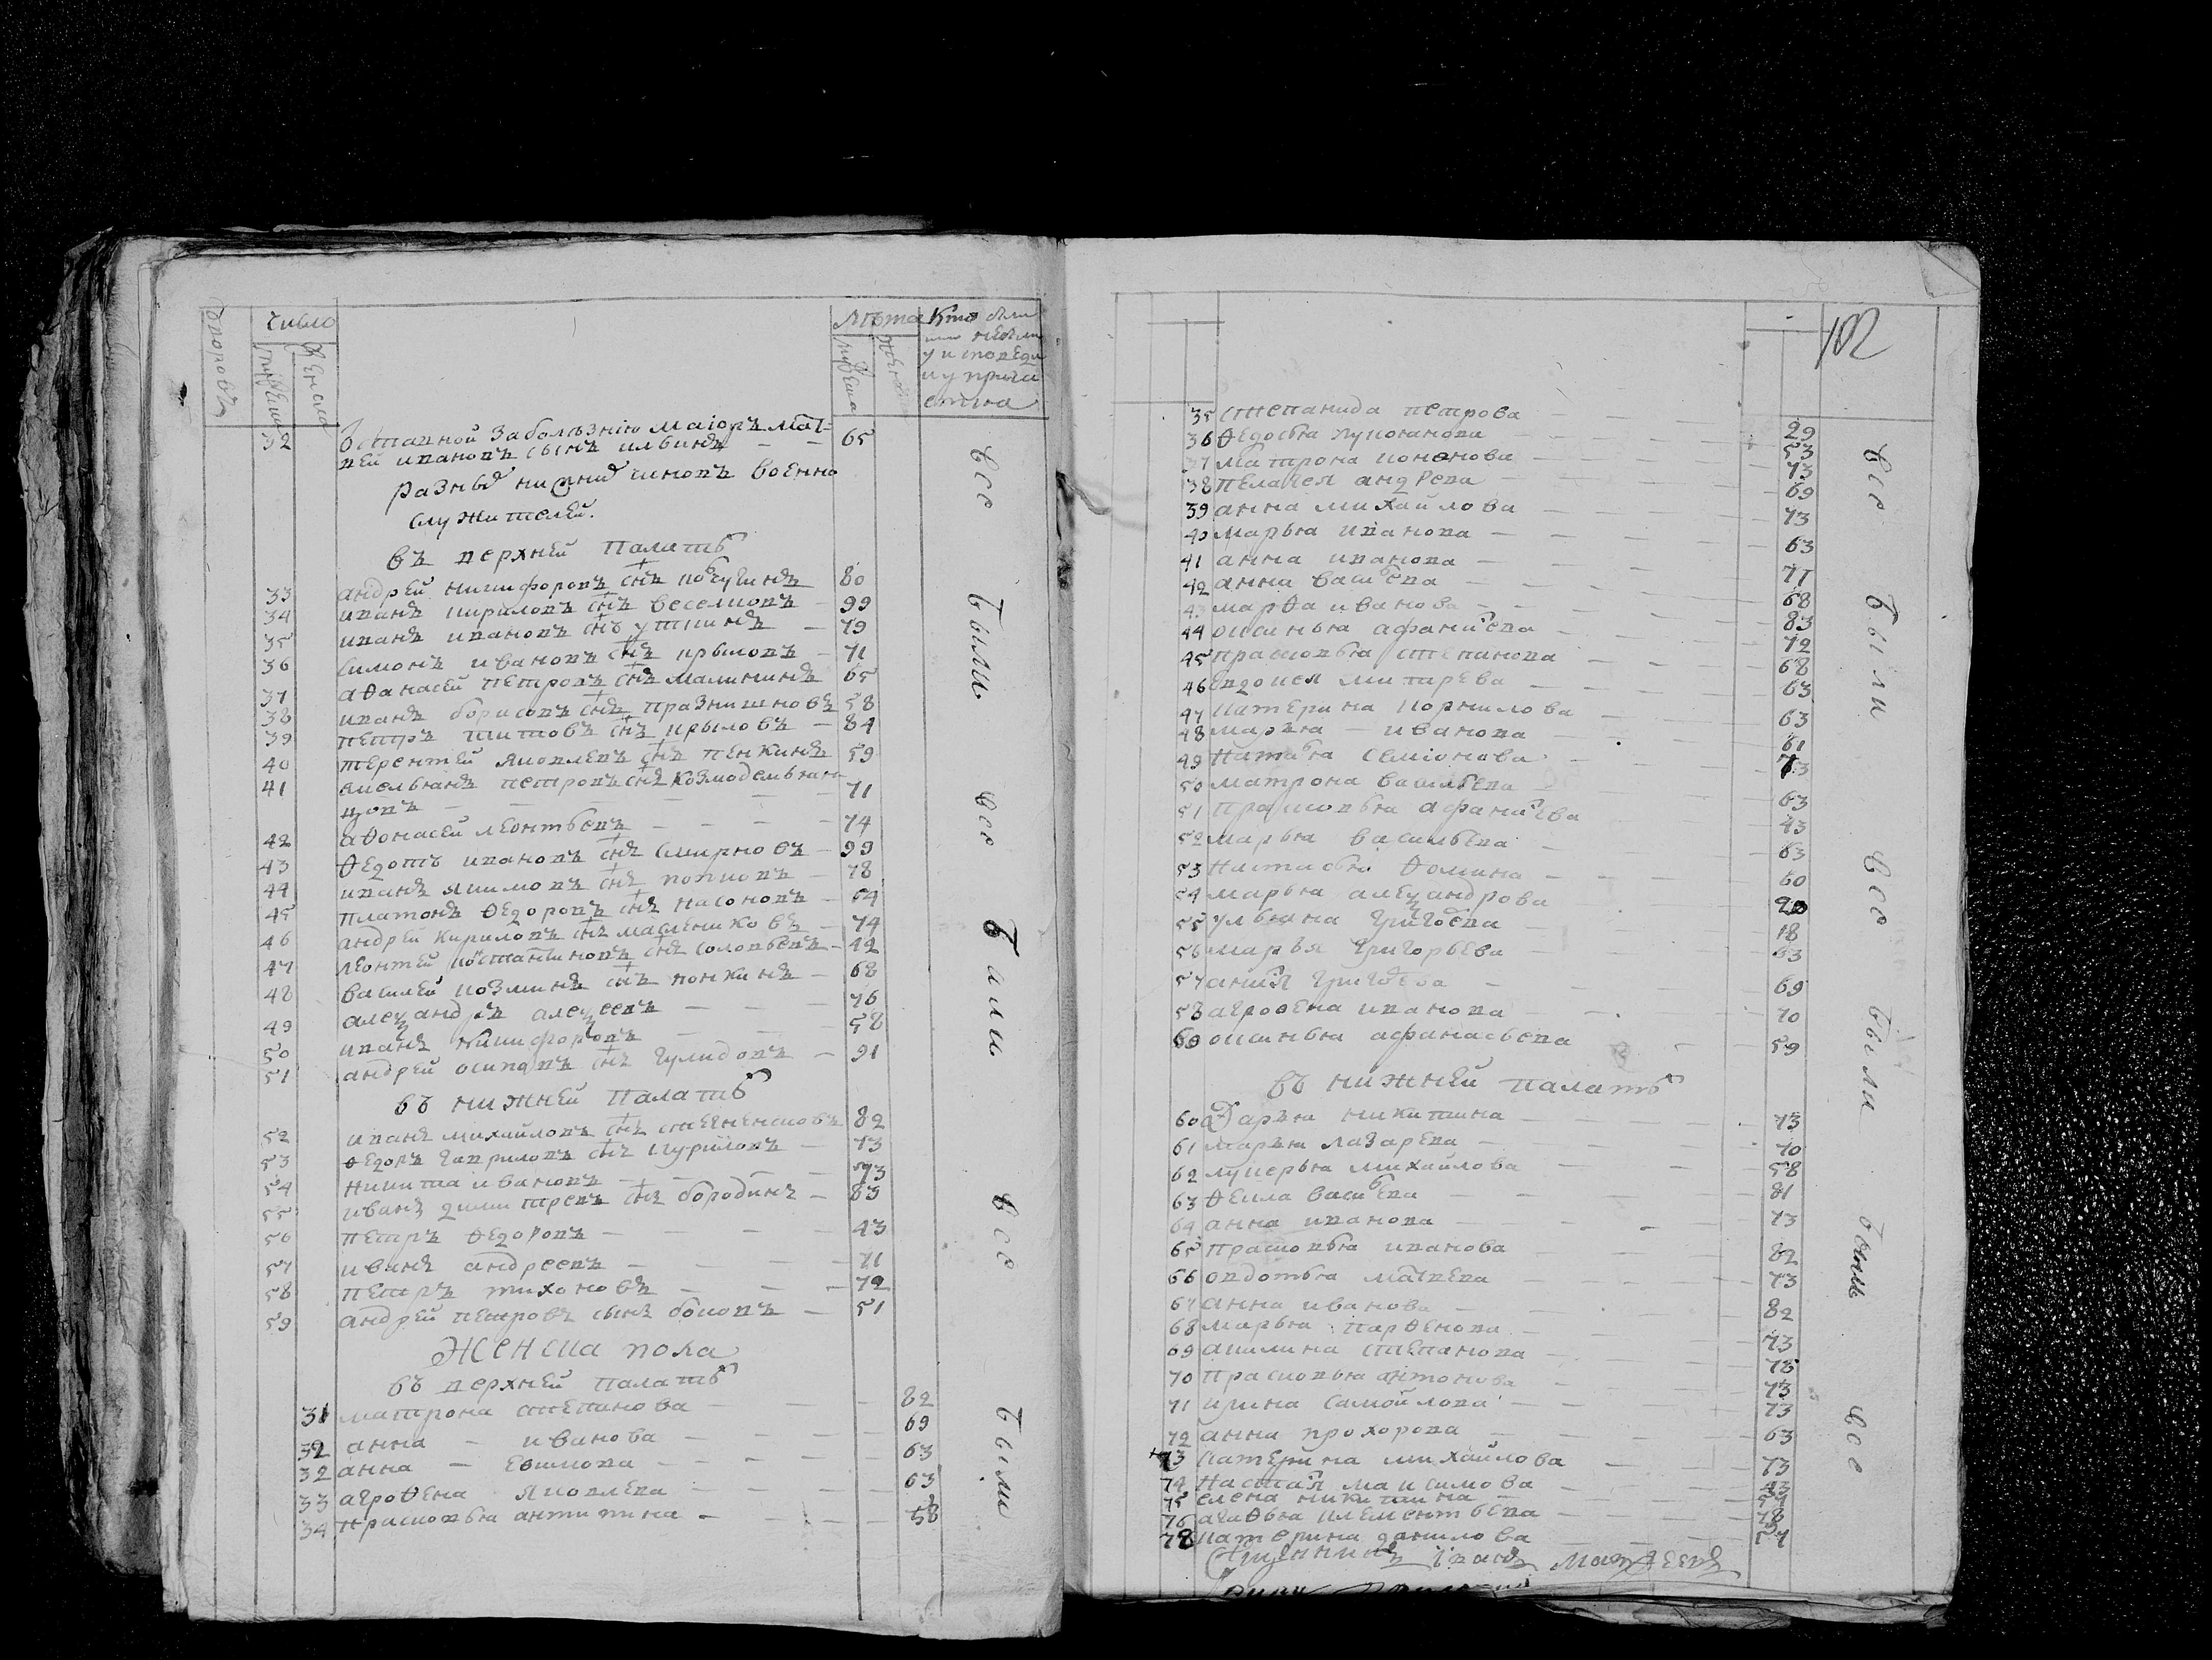 дворовъ число мужеска женска лѣта мужеска женска Кто были
или небыли
у исповеди
и у прича
стиіа
32 Отставной заболѣзнію маіоръ мат-
вей ивановъ сынъ ильинъ — — 65
разных нижних чиновъ военно
служителей.
въ верхней палатѣ
33 андрей никифоровъ снъ 80
34 иванъ кириловъ снъ веселковъ — 99
35 иванъ ивановъ снъ уткинъ — 79
36 симонъ ивановъ снъ крыловъ — 71
37 аѳанасей петровъ снъ малининъ 65
38 иванъ борисовъ снъ празнишновъ 58
39 петръ титовъ снъ крыловъ — 84
40 терентей яковлевъ снъ пенкинъ 59
41 емельянъ петровъ снъ козмодемьян
цовъ — — — — — 71
42 аѳонасей леонтьевъ — — — 74
43 ѳедотъ ивановъ снъ смирновъ — 99
44 иванъ якимовъ снъ поповъ — 78
45 платонъ ѳедоровъ снъ насоновъ — 64
46 андрей кириловъ снъ маслениковъ — 74
47 леонтей костантиновъ снъ соловьевъ — 42
48 василей козминъ снъ понкинъ — 68
49 алеѯандръ алеѯеевъ — — — 76
50 иванъ никифоровъ — — — 58
51 андрей осиповъ снъ гулидовъ — 91
въ нижней палатѣ
52 иванъ михайловъ снъ 82
53 ѳедоръ гавриловъ снъ куриловъ — 73
54 никита ивановъ — — — 73
55 иванъ димитревъ снъ бородинъ — 83
56 петръ ѳедоровъ — — — — 43
57 иванъ андреевъ — — — — 71
58 петръ тихоновъ — — — — 72
59 андрей петровъ сынъ боковъ — 51
Женска пола
въ верхней палатѣ
31 матрона степанова — — — 82
32 анна — иванова — — — — 69
32 анна — екимова — — — — 63
33 агроѳена яковлева — — — 63
34 прасковья антипина — — — — 58
все были все были все были
102
35 степанида петрова — — 29
36 ѳедосья — — 53
37 матрона кононова — — — — 73
38 пелагея андрева — — — — 69
39 анна михайлова — — — — 73
40 марья иванова — — — — 63
41 анна иванова — — — — 77
42 анна васильева — — — — 68
43 марѳа иванова — — — — 83
44 оксинья афанасьева — — — 72
45 прасковья степанова — — — 68
46 евдокея митрева — — — 63
47 катерина корнилова — — — 63
48 марья — иванова — — — 61
49 настасья семіонова — — — 73
50 матрона васильева — — — 63
51 прасковья афанасьева — — 43
52 марья васильева — — — 63
53 настасья ѳомина — — — 60
54 марья алеѯандрова — — — 90
55 ульяна григорьева — — — 18
56 марья григорьева — — — 63
57 григорьева — — — 69
58 агроѳена иванова — — — 70
60 оксинья афанасьева — — 59
въ нижней палатѣ
60 Дарья никитина — — — 73
61 марья лазарева — — — 70
62 лукерья михайлова — — — 58
63 ѳекла васильева — — — 81
64 анна иванова — — — 73
65 прасковья иванова — — — 82
66 овдотья матвева — — — 73
67 анна иванова — — — 82
68 марья парѳенова — — — 73
69 акилина степанова — — — 78
70 прасковья антонова — — — 73
71 ирина самойлова — — — 73
72 анна прохорова — — — 63
73 катерина михайлова — — 73
74 настасья максимова — — 43
75 елена никитина — —
76 агаѳья клементьева — — 78
78 катерина данилова — — 57
все были все были были все
Священникъ Іванъ Матѳеевъ